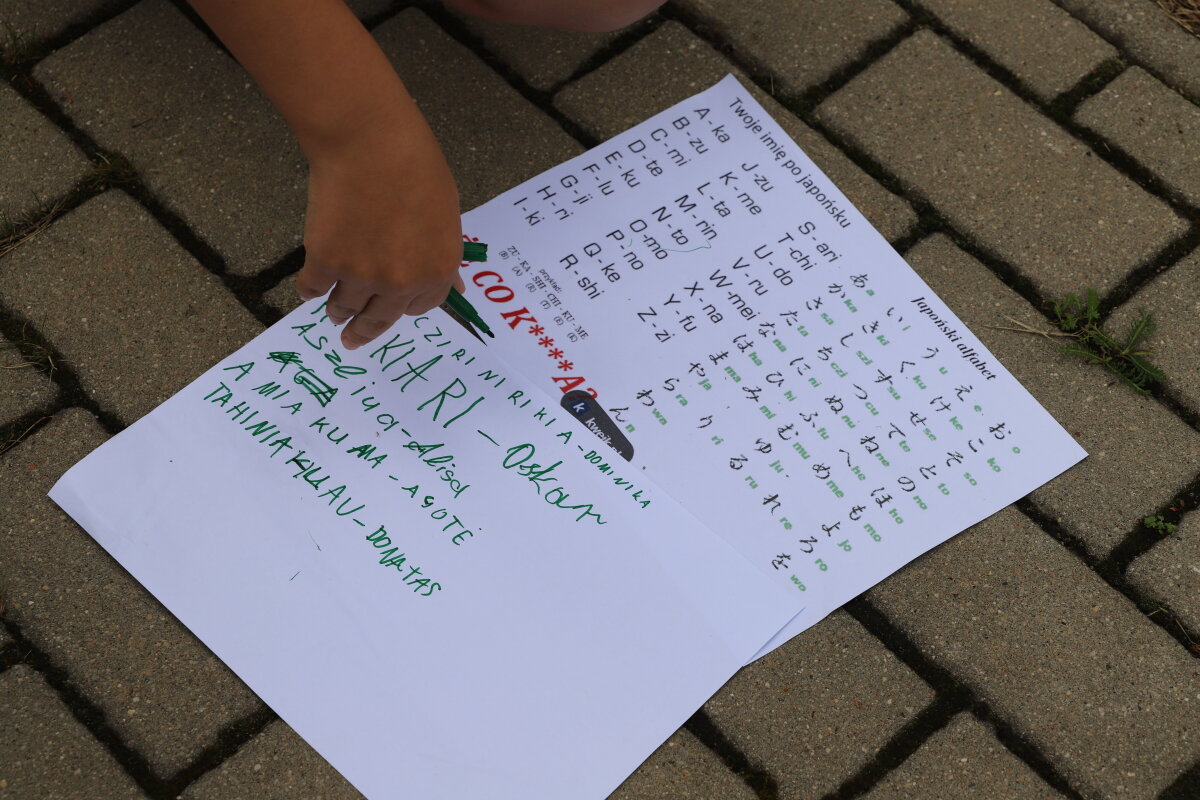 Twoje imię po japońsku
A - ka
B - zu
C - mi
D - te
E - ku
F - lu
G - ji
H - ri
I - ki
J - zu
K - me
L - ta
M - rin
N - to
O - mo
P - no
Q - ke
R - shi
S - ari
T - chi
U - do
V - ru
W - mei
X - na
Y - fu
Z - zi
przykład:
ZU - KA - SHI - CHI - KU - ME
(B) (A) (R) (T) (E) (K)
CO K****A?
k kwejk
Japoński alfabet
あ a い i う u え e お o
か ka き ki く ku け ke こ ko
さ sa し szi す su せ se そ so
た ta ち czi つ cu て te と to
な na に ni ぬ nu ね ne の no
は ha ひ hi ふ fu へ he ほ ho
ま ma み mi む mu め me も mo
や ja ゆ ju よ jo
ら ra り ri る ru れ re ろ ro
わ wa を wo
ん n
RI NI RI KI A - DOMINIKA
KIARI - Oskar
AMIA KUMA - AGOTĖ
TAHINIAKUAU - DONATAS